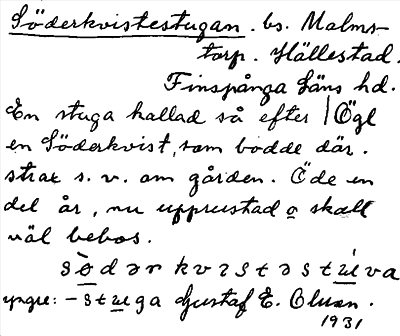 Söderkvistestugan. bs. Malms-
torp. Hällestad.
Finspånga läns hd.
En stuga kallad så efter | Ögl
en Söderkvist, som bodde där.
strax s. v. om gården. Öde en
del år, nu upprustad o skall
väl bebos.
sòdərkvɪstəstúva
yngre: -stuga Gustaf E. Olsson.
1931